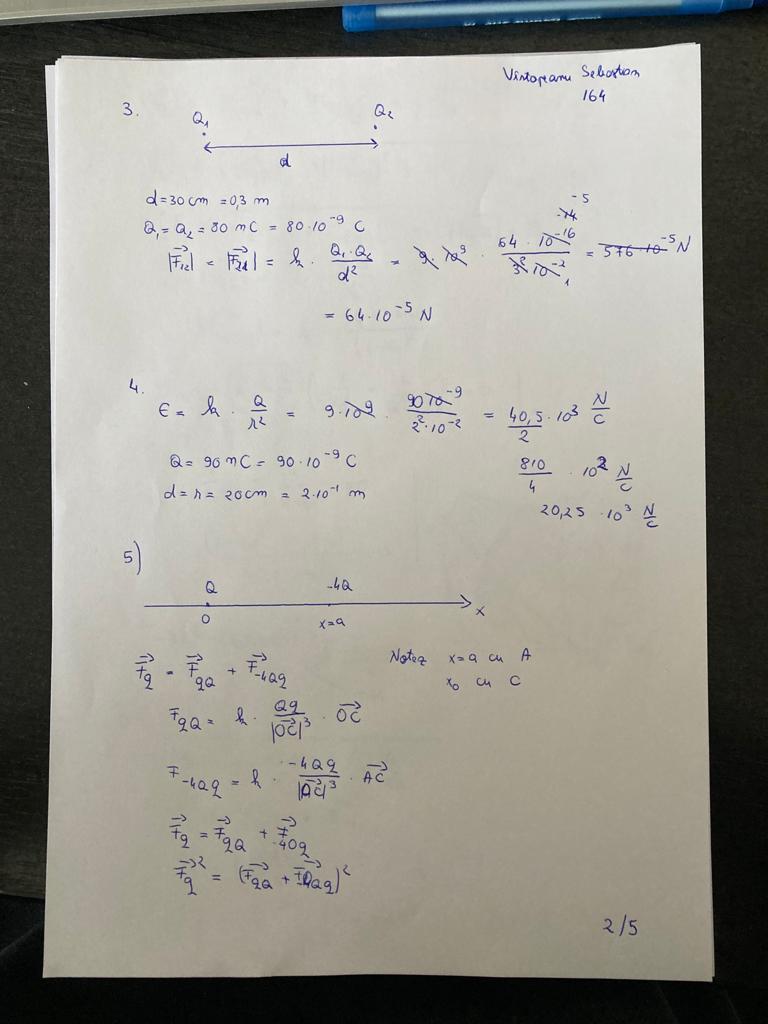 Vintopeanu Sebastian
164
3.
Q₁ Q₂
d
d = 30 cm = 0,3 m
Q₁ = Q₂ = 80 nC = 80·10⁻⁹ C
|F₁₂| = |F₂₁| = k · Q₁·Q₂/d² = 9·10⁹ · 64·10⁻¹⁶/3²·10⁻² = 576·10⁻⁵ N
-14 -5
1
= 64·10⁻⁵ N
4.
E = k · Q/r² = 9·10⁹ · 90·10⁻⁹/2²·10⁻² = 40,5/2 · 10³ N/C
Q = 90 nC = 90·10⁻⁹ C
810/4 · 10² N/C
d = r = 20 cm = 2·10⁻¹ m
20,25 · 10³ N/C
5)
Q -4Q
O x=a x
F⃗q = F⃗qQ + F⃗-4Qq
Notez x=a cu A
x₀ cu C
FqQ = k · Qq/|OC⃗|³ · OC⃗
F-4Qq = k · -4Qq/|AC⃗|³ · AC⃗
F⃗q = F⃗qQ + F⃗-4Qq
F⃗q² = (F⃗qQ + F⃗-4Qq)²
2/5